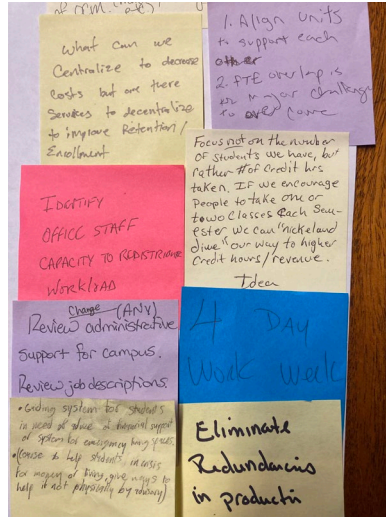 What can we
Centralize to decrease
costs but are there
Services to decentralize
to improve Retention/
Enrollment
1. Align units
to support each
other
2. FTE overlap is
major challenge
to over come
Focus not on the number
of students we have, but
rather # of credit hrs
taken. If we encourage
people to take one or
towo classes each Sem-
ester we can "nickel and
dime" our way to higher
Credit hours/revenue.
Idea
IDENTIFY
OFFICE STAFF
CAPACITY TO REDISTRIBUTE
WORKLOAD
Change (ANY)
Review administrative
support for campus.
Review job descriptions.
4 DAY
Work Week
• system for students
in need of financial support
of system for emergency living
to help students in crisis
for
help if not physically by
Eliminate
Redundancies
in